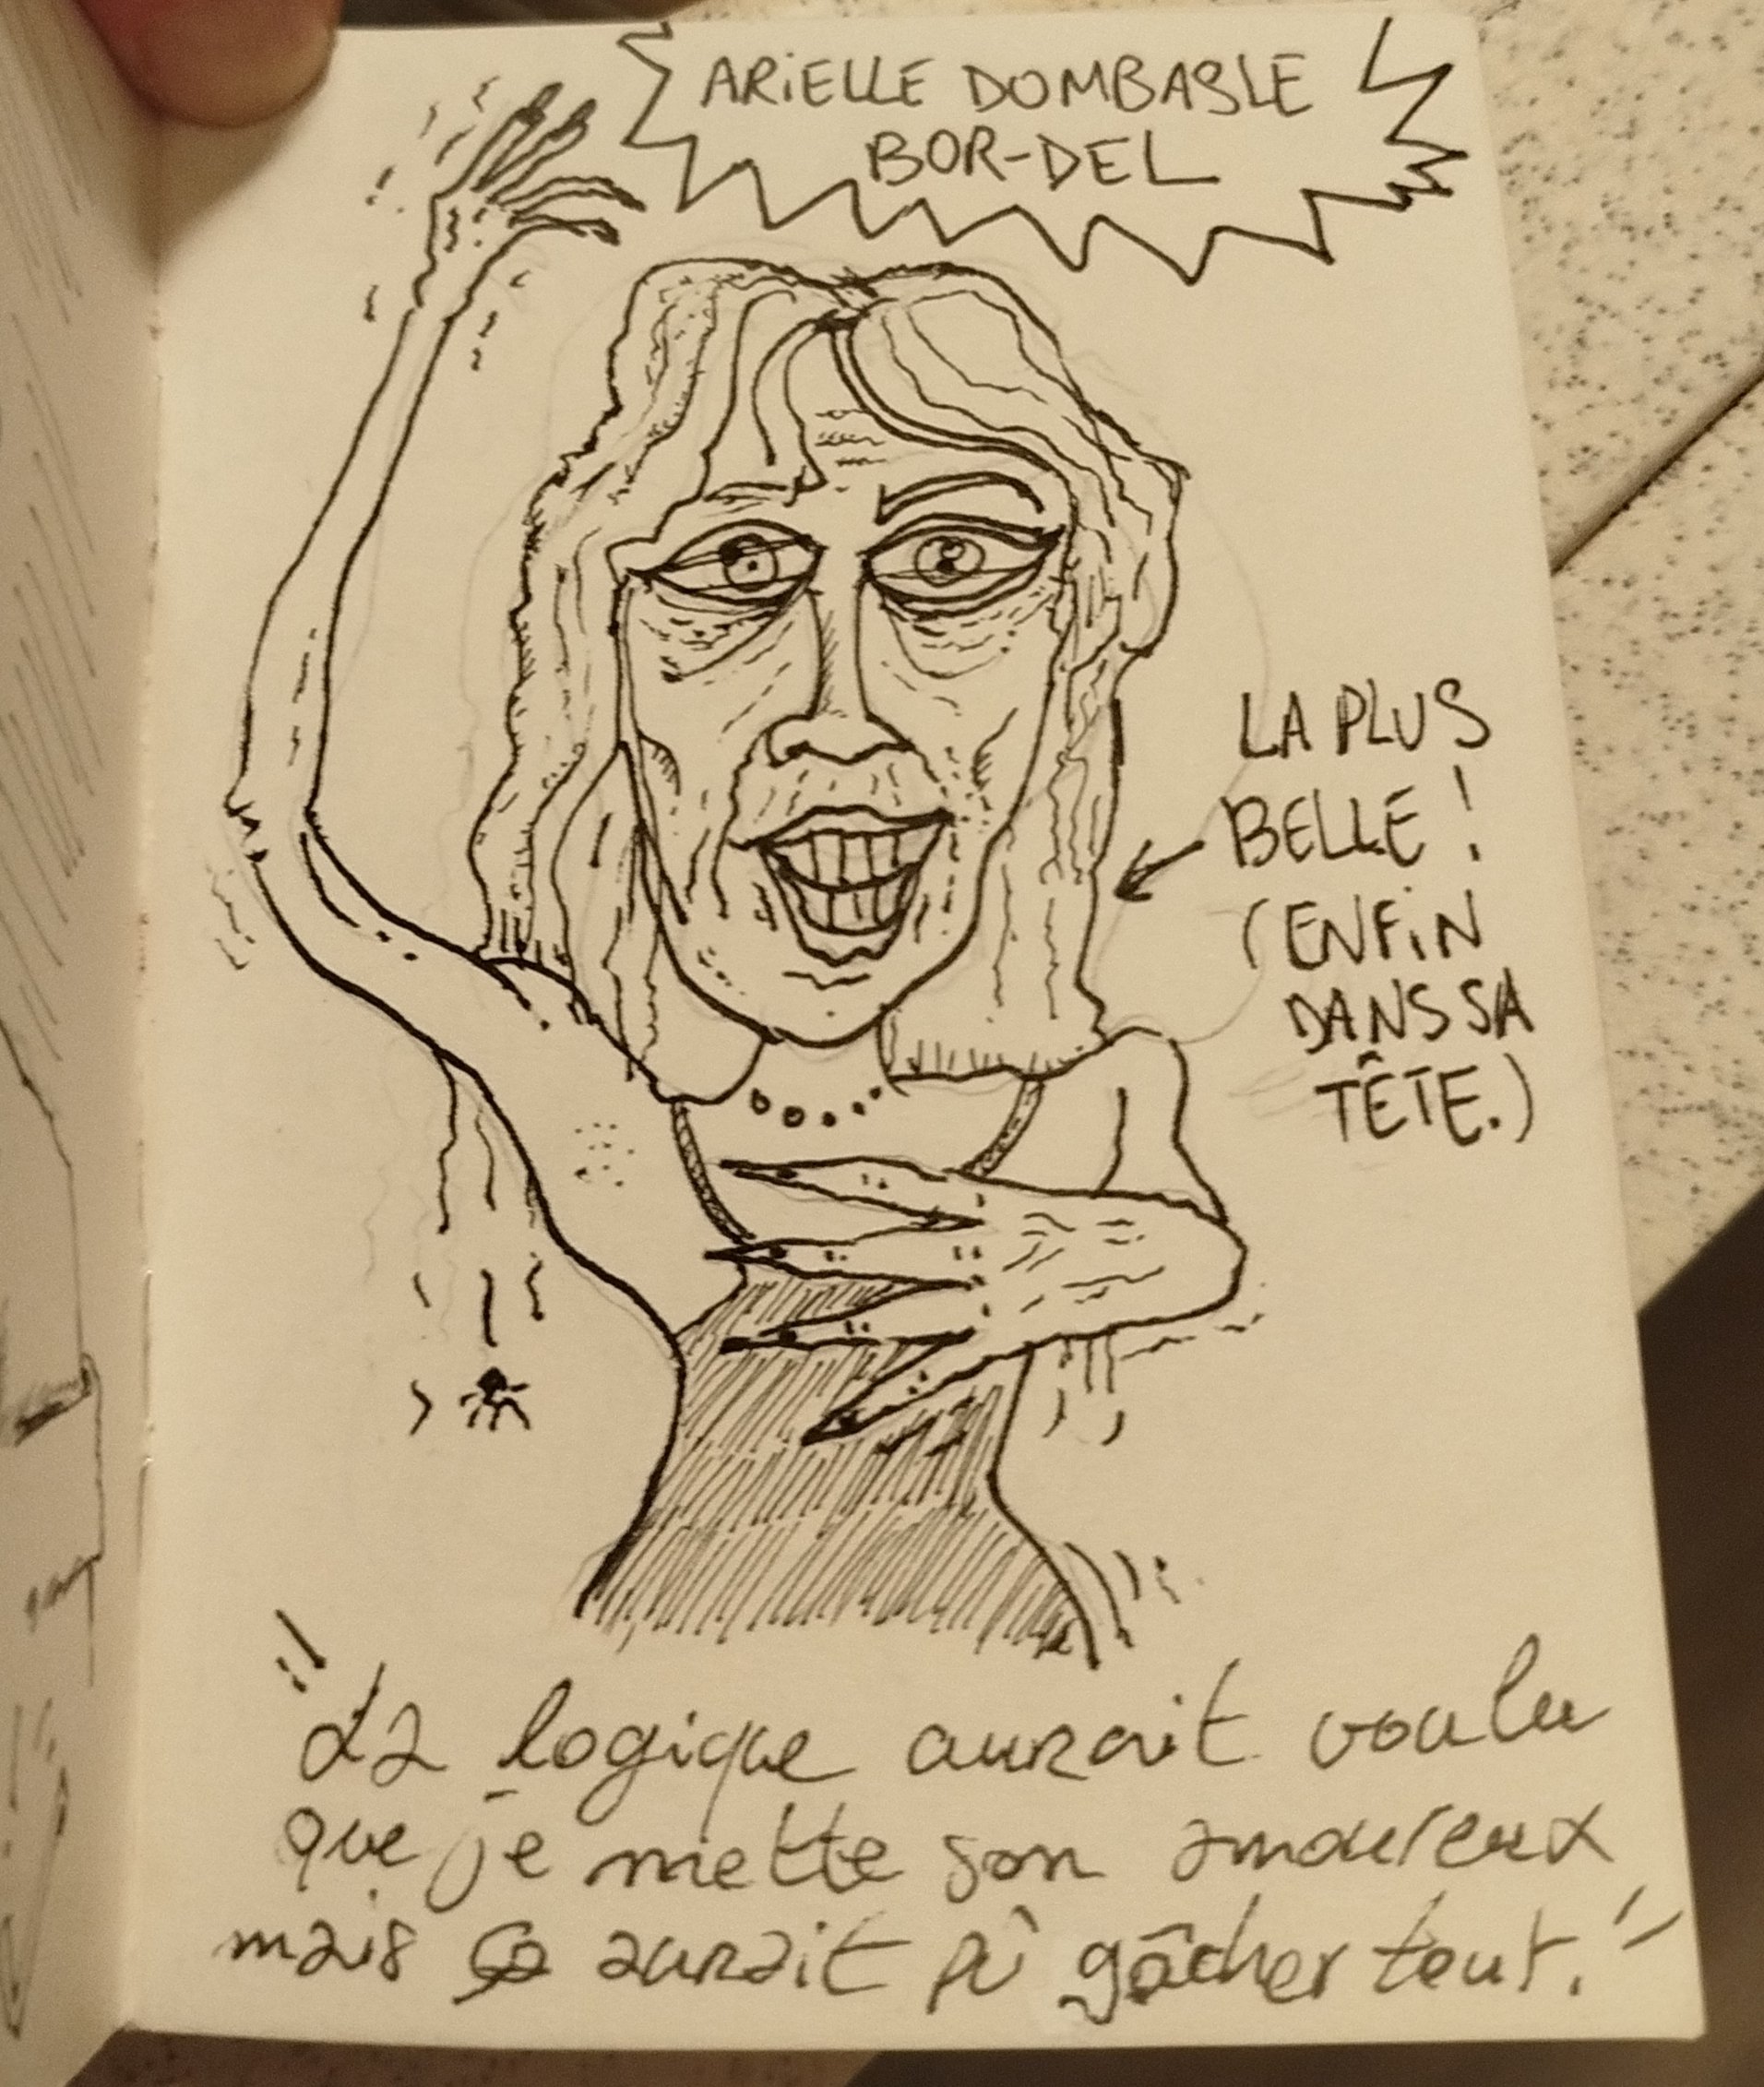 ARIELLE DOMBASLE
BOR-DEL
LA PLUS
BELLE !
(ENFIN
DANS SA
TÊTE.)
"La logique aurait voulu
que je mette son amoureux
mais ça aurait pû gâcher tout."